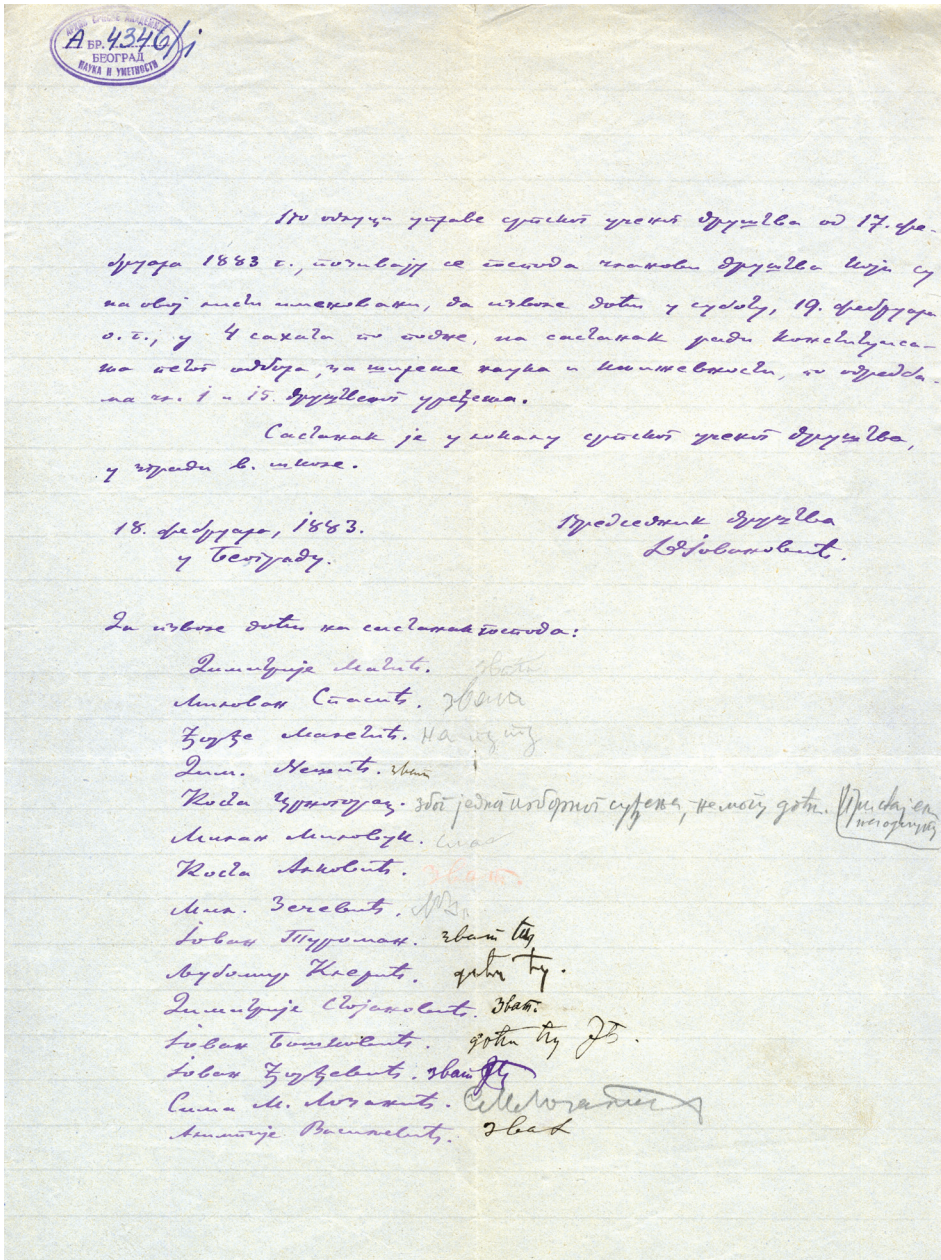 АРХИВ СРПСКЕ АКАДЕМИЈЕ
А БР. 4346/1
БЕОГРАД
НАУКА И УМЕТНОСТИ
По одлуци управе српског ученог друштва од 17. фе-
бруара 1883 г., позивају се господа чланови друштва који су
на овој листи именовани, да изволе доћи у суботу, 19. фебруара
о. г., у 4 сахата по подне, на састанак ради конституиса-
ња петог одбора, за ширење наука и књижевности, по одредба-
ма чл. 1 и 15. друштвеног уређења.
Састанак је у локалу српског ученог друштва,
у згради в. школе.
18. фебруара, 1883.
у Београду.
Председник друштва
Јовановић.
Да изволе доћи на састанак господа:
Димитрије Матић. зват
Милован Спасић. зват
Ђорђе Малетић. На пут
Дим. Нешић. зват
Коста Црногорац. због једног изборног суђења, не могу доћи.
Милан Миловук.
Коста Алковић. зват.
Мил. Зечевић.
Јован Туроман. зват
Љубомир Клерић. доћи ћу.
Димитрије Стојановић. Зват.
Јован Бошковић. доћи ћу ЈБ.
Јован Ђорђевић. зват ЈЂ
Сима М. Лозанић. СМЛозанић
Алимпије Васиљевић. зват